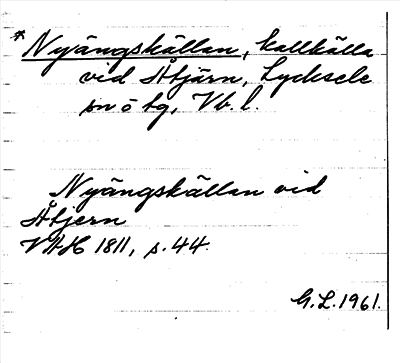 * Nyängskällan, kallkälla
vid Åtjärn, Lycksele
sn o tg, Vb. l.
Nyängskällan vid
Åtjern
VAH 1811, s. 44.
G. L. 1961.